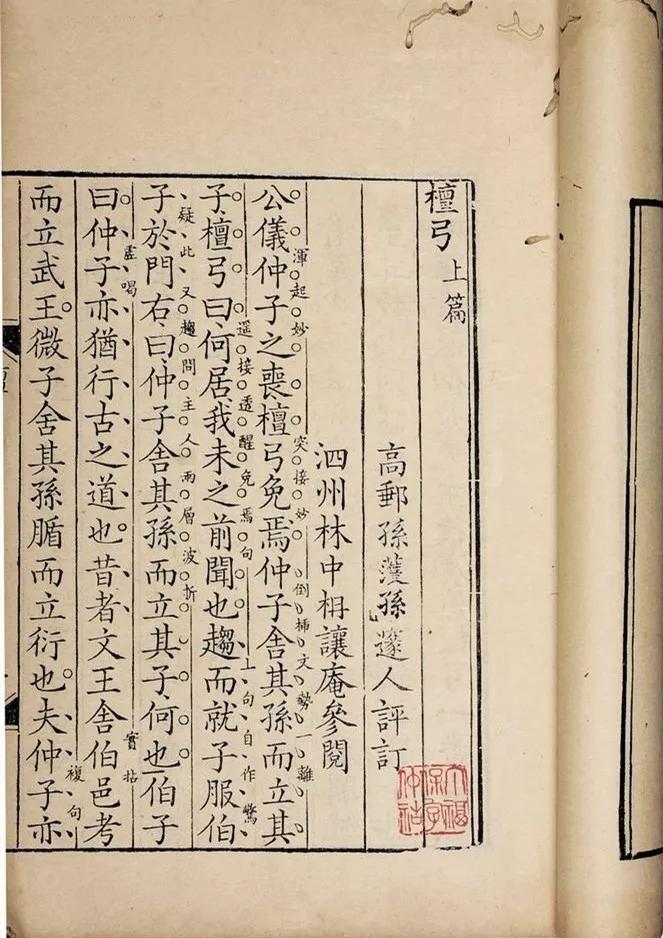 檀弓上篇
高郵孫濩孫邃人評訂
泗州林中枏讓庵參閱
公儀仲子之喪檀弓免焉仲子舍其孫而立其
渾起妙
突接妙
倒插文勢一離
子檀弓曰何居我未之前聞也趨而就子服伯
遥接透醒免焉句
上句自作驚
子於門右曰仲子舍其孫而立其子何也伯子
疑此又趨問主人兩層波折
曰仲子亦猶行古之道也昔者文王舍伯邑考
虛喝
實拈
而立武王微子舍其孫腯而立衍也夫仲子亦
複句